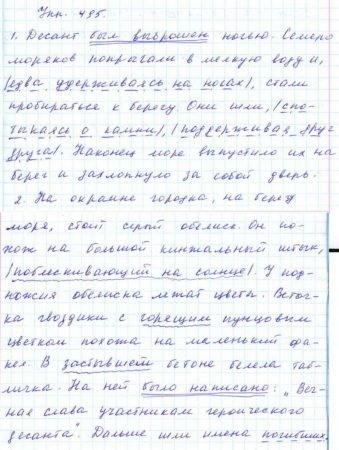 Упр. 495.
1. Десант был выброшен ночью. Семеро
моряков попрыгали в мелкую воду и,
|едва удерживаясь на ногах|, стали
пробираться к берегу. Они шли, |спо-
тыкаясь о камни|, |поддерживая друг
друга|. Наконец море выпустило их на
берег и захлопнуло за собой дверь.
2. На окраине городка, на берегу
моря, стоит серый обелиск. Он по-
хож на большой кинжальный штык,
|поблескивающий на солнце|. У под-
ножия обелиска лежат цветы. Веточ-
ка гвоздики с горящим пунцовым
цветком похожа на маленький фа-
кел. В застывшем бетоне белела таб-
личка. На ней было написано: „Веч-
ная слава участникам героического
десанта". Дальше шли имена погибших.